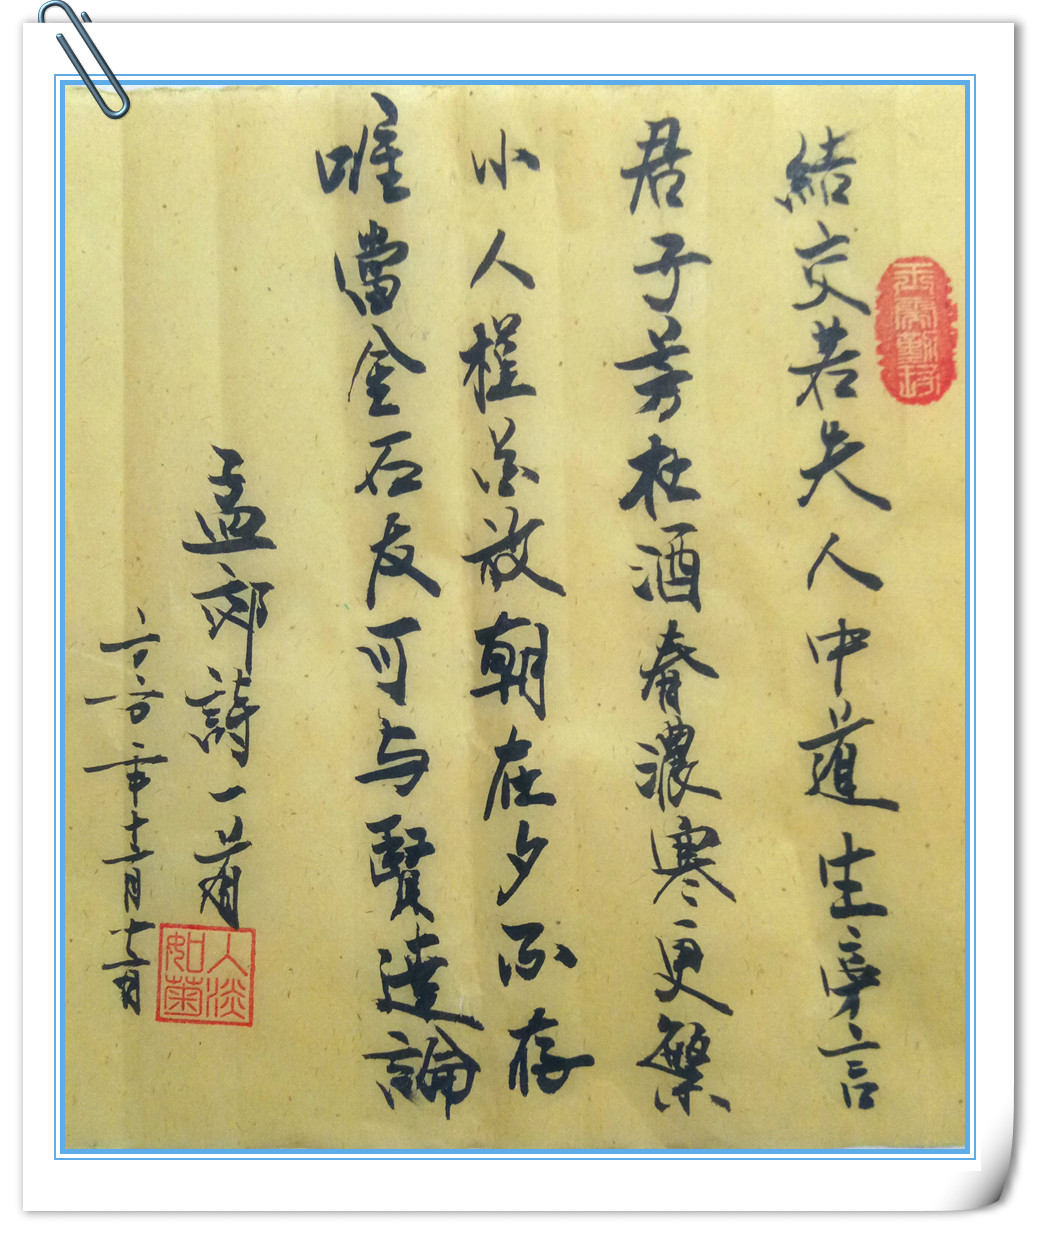 結交若失人中道生旁言
君子芳杜酒春濃寒更繁
小人槿花放朝在夕不存
唯當金石友可与賢達論
孟郊詩一首
年十二月
人淡如菊